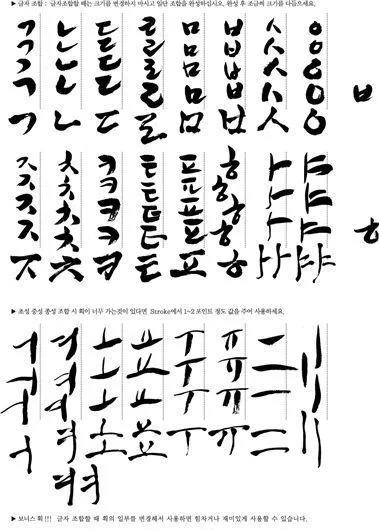 ▶ 글자 조합 : 글자조합할 때는 크기를 변경하지 마시고 일단 조합을 완성하십시오. 완성 후 조금씩 크기를 다듬으세요.
ㄱ ㄴ ㄷ ㄹ ㅁ ㅂ ㅅ ㅇ
ㄱ ㄴ ㄷ ㄹ ㅁ ㅂ ㅅ ㅇ
ㄱ ㄴ ㄷ ㄹ ㅁ ㅂ ㅅ ㅇ ㅂ
ㄱ ㄴ ㄷ ㄹ ㅁ ㅂ ㅅ ㅇ
ㅈ ㅊ ㅋ ㅌ ㅍ ㅎ ㅏ ㅑ
ㅈ ㅊ ㅋ ㅌ ㅍ ㅎ ㅏ ㅑ
ㅈ ㅊ ㅋ ㅌ ㅍ ㅎ ㅏ ㅑ ㅎ
ㅈ ㅊ ㅋ ㅌ ㅍ ㅎ ㅏ ㅑ
▶ 초성 중성 종성 조합 시 획이 너무 가는것이 있다면 Stroke에서 1~2 포인트 정도 값을 주어 사용하세요.
ㅓ ㅕ ㅗ ㅛ ㅜ ㅠ ㅡ ㅣ
ㅓ ㅕ ㅗ ㅛ ㅜ ㅠ ㅡ ㅣ
ㅓ ㅕ ㅗ ㅛ ㅜ ㅠ ㅡ ㅣ
ㅓ ㅕ ㅗ ㅛ ㅜ ㅠ ㅡ
ㅕ ㅕ
▶ 보너스 획 !!! 글자 조합할 때 획의 일부를 변경해서 사용하면 힘차거나 재미있게 사용할 수 있습니다.